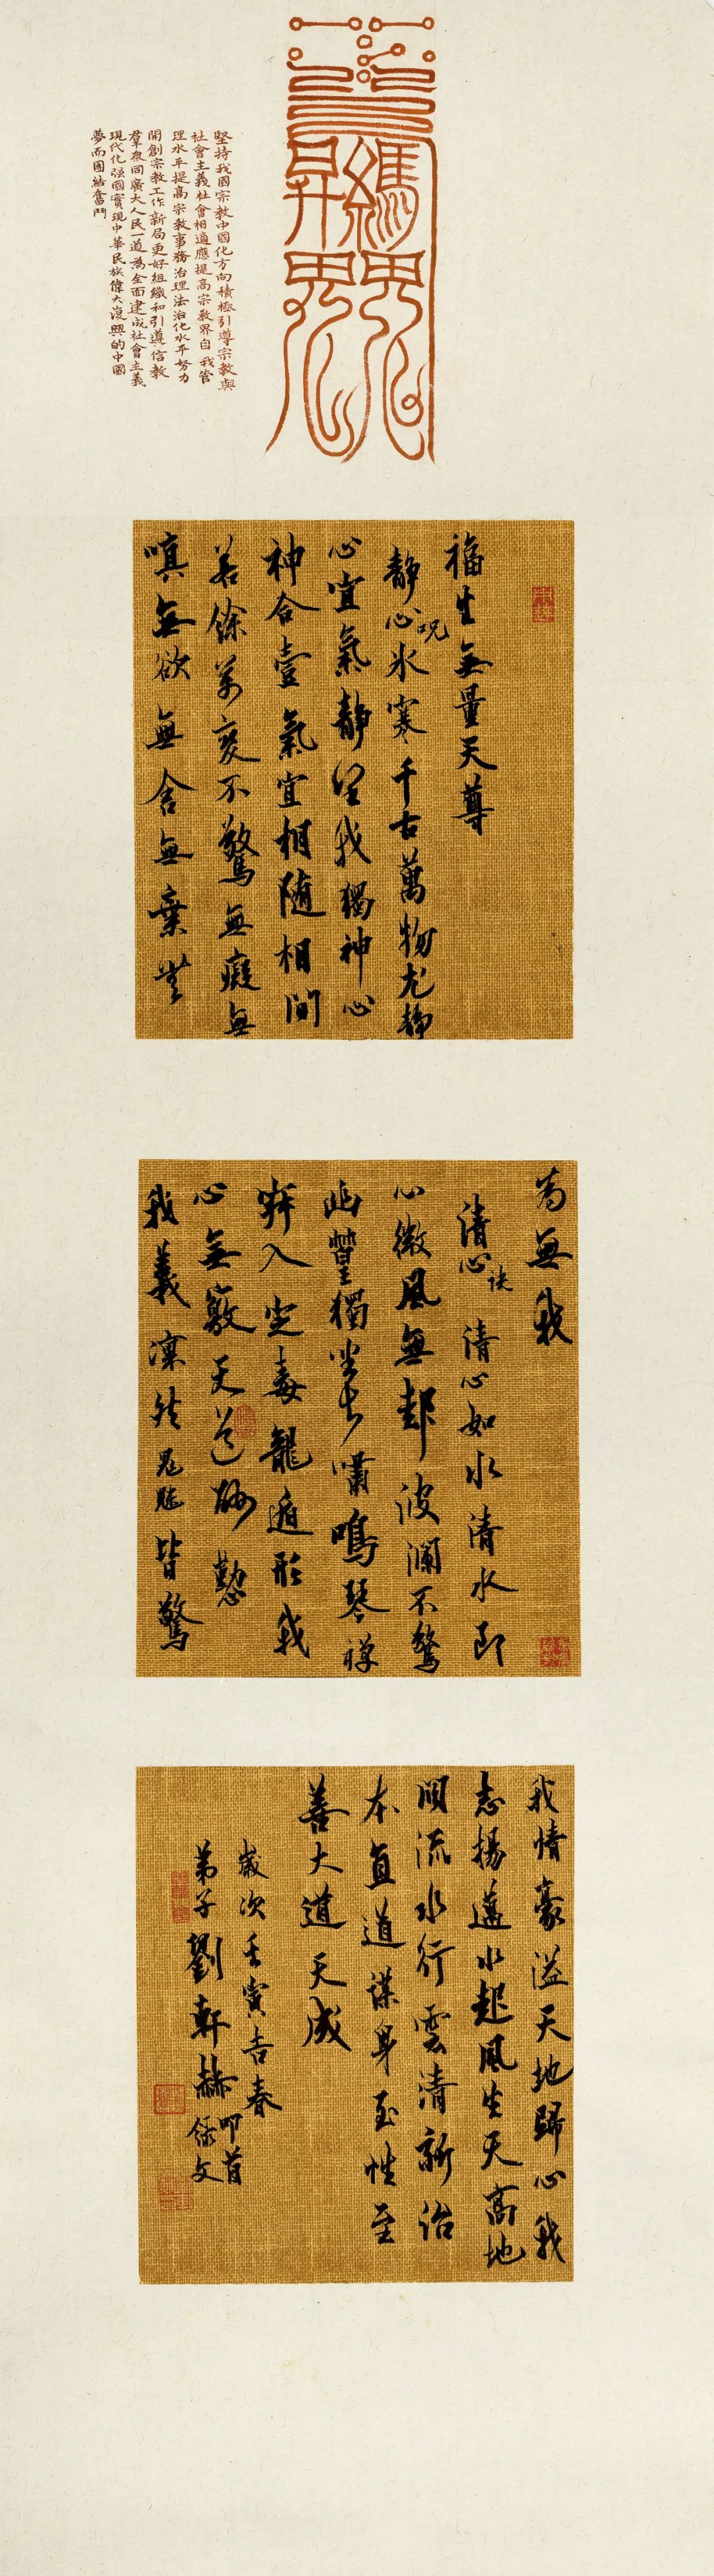 堅持我國宗教中國化方向積極引導宗教與
社會主義社會相適應提高宗教界自我管
理水平提高宗教事務治理法治化水平努力
開創宗教工作新局更好組織和引導信教
羣衆同廣大人民一道為全面建成社會主義
現代化强國實現中華民族偉大復興的中國
夢而團結奮鬥
福生無量天尊
靜心呪 氷寒千古萬物尤靜
心宜氣靜望我獨神心
神合壹氣宜相隨相間
若餘萬變不驚無癡無
嗔無欲無舍無棄無
為無我
清心訣 清心如水清水即
心微風無起波瀾不驚
幽篁獨坐長嘯鳴琴禪
寂入定毒龍遁形我
心無竅天道酬勤
我義凜然鬼魅皆驚
我情豪溢天地歸心我
志揚邁水起風生天高地
闊流水行雲清新治
本直道謀身至性至
善大道天成
歲次壬寅吉春
弟子劉軒赫叩首
錄文